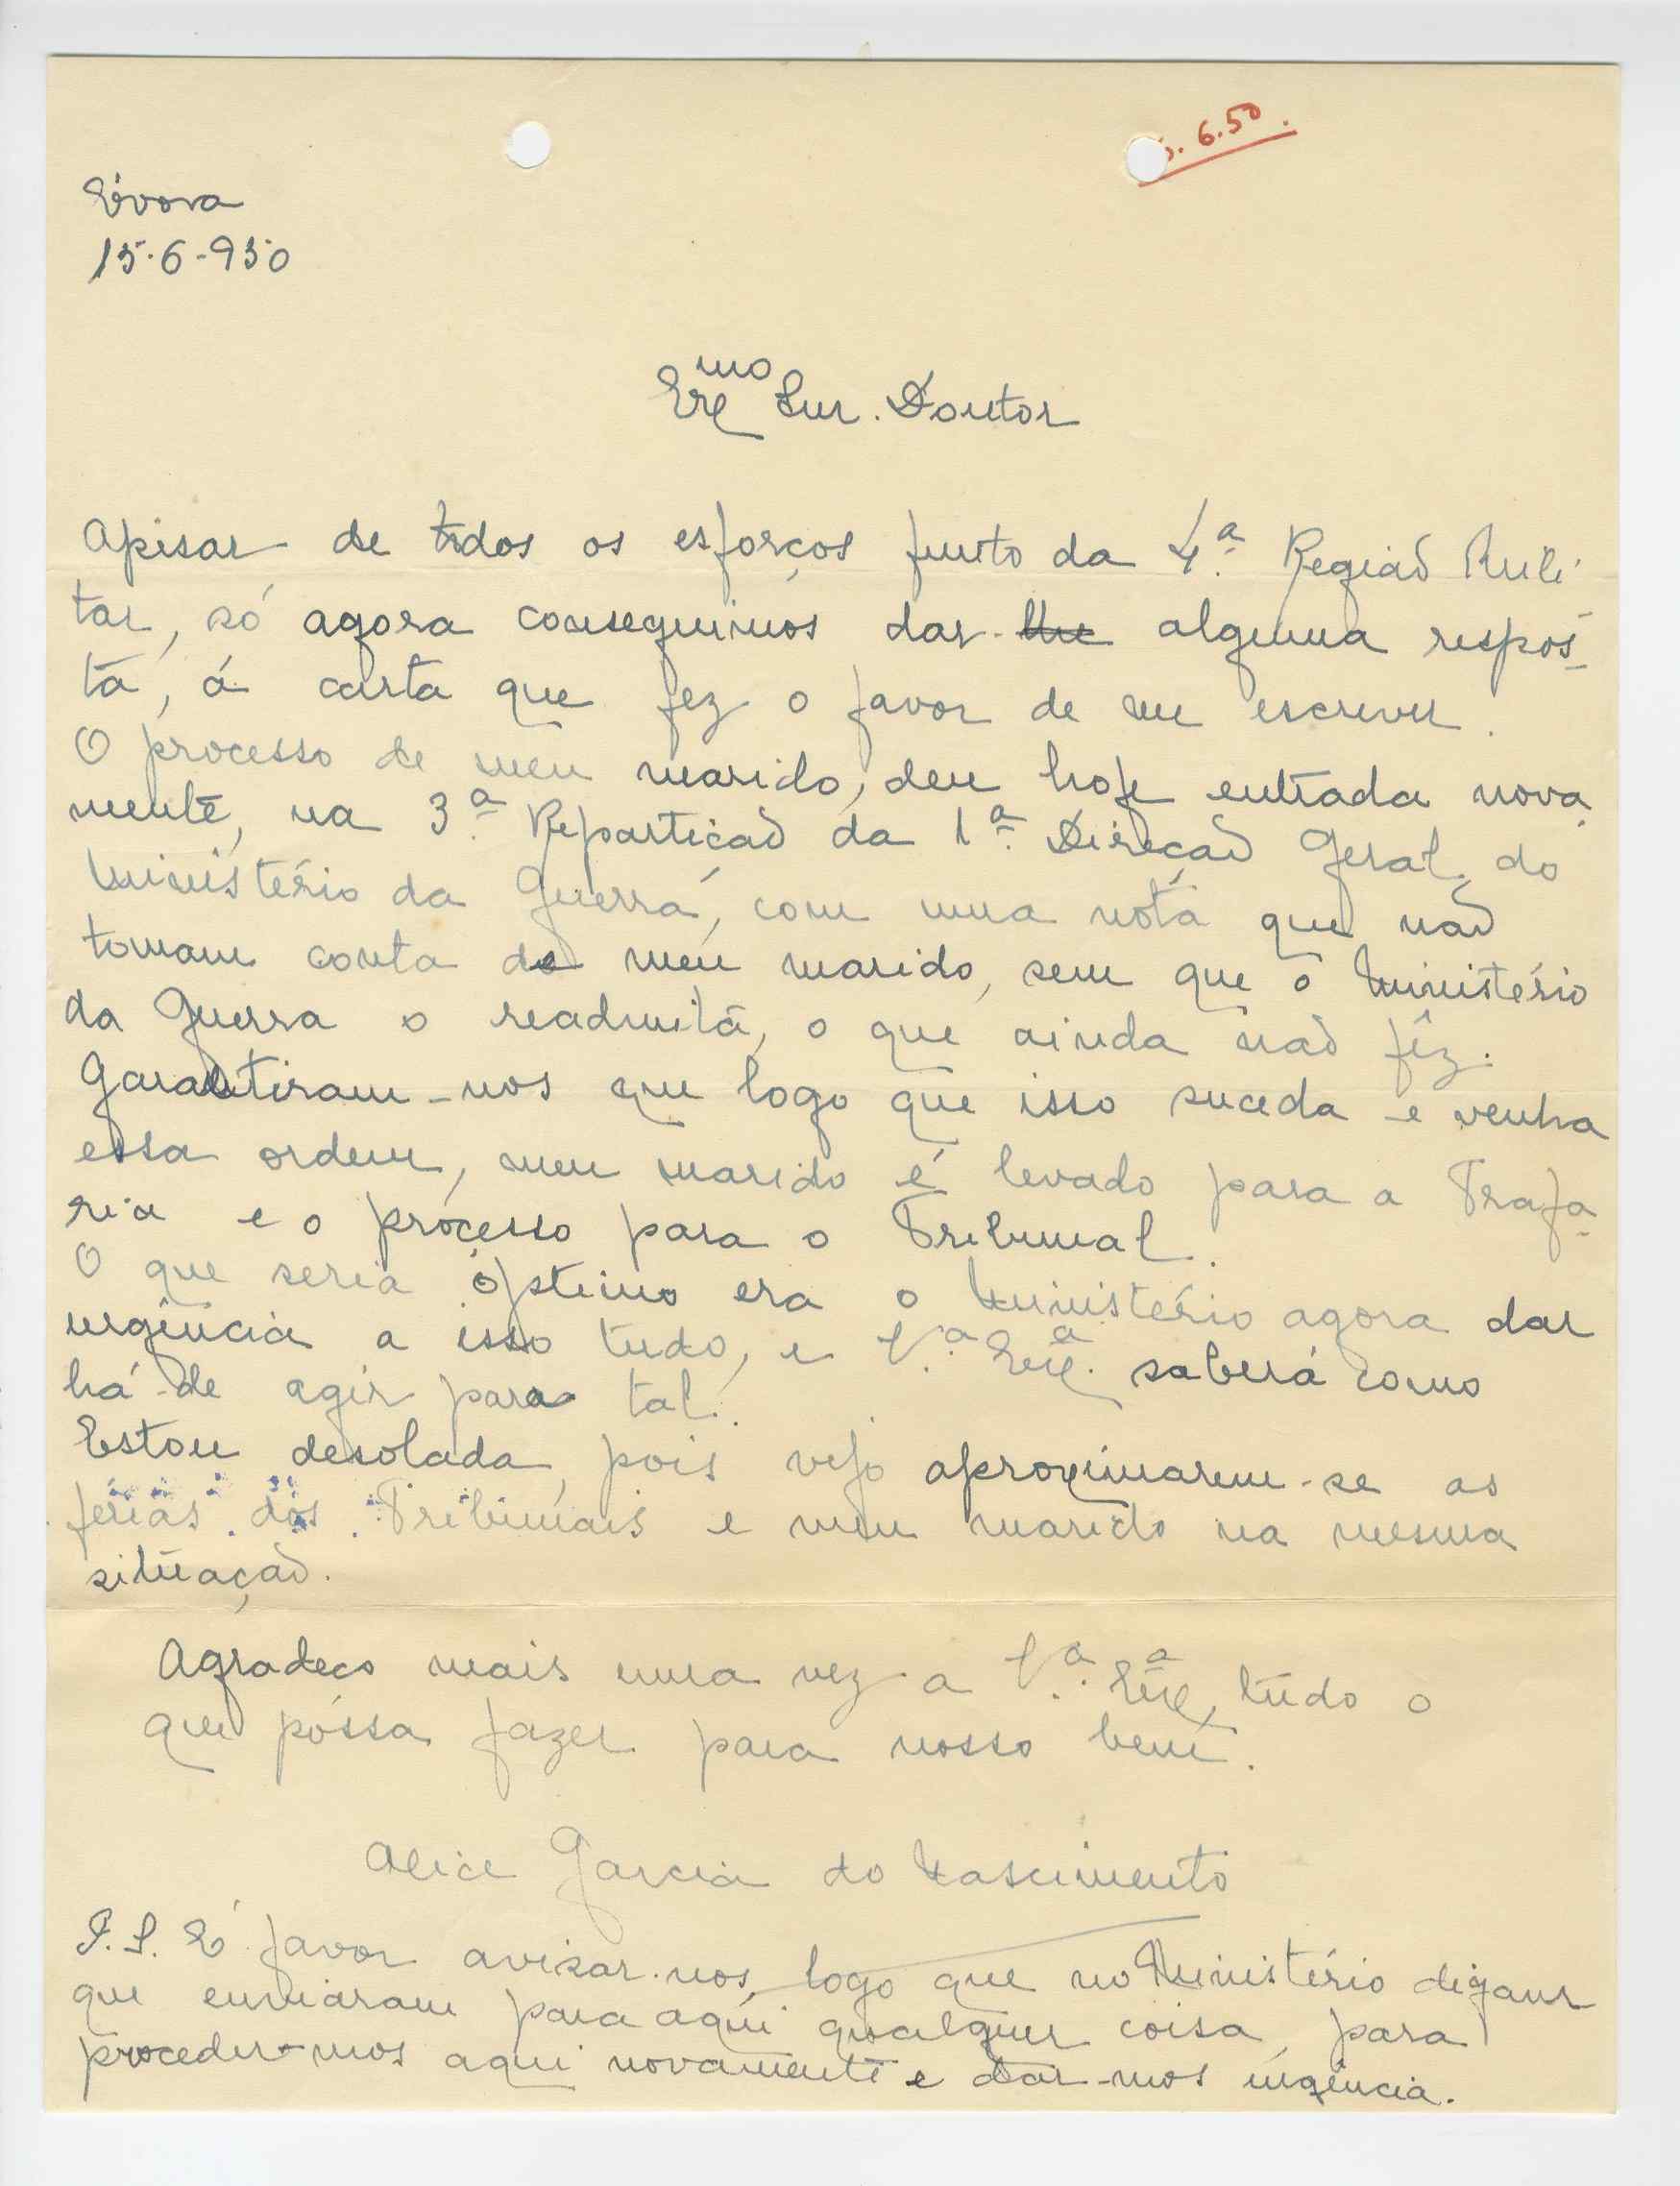 5. 6.50.
Évora
15-6-950
Ex.mo Snr. Doutor
Apisar de todos os esforços junto da 4.ª Região Mili-
tar, só agora conseguimos dar-lhe alguma respos-
ta, á carta que fez o favor de me escrever.
O processo de meu marido, deu hoje entrada nova-
mente, na 3.ª Repartição da 1.ª Direcção Geral do
Ministério da Guerra, com uma nota que não
tomam conta de meu marido, sem que o Ministério
da Guerra o readmita, o que ainda não fêz.
Garantiram-nos que logo que isso suceda e venha
essa ordem, meu marido é levado para a Trafa-
ria e o processo para o Tribunal.
O que seria óptimo era o Ministério agora dar
urgência a isso tudo, e V.ª Ex.ª saberá como
há-de agir para tal.
Estou desolada, pois vejo aproximarem-se as
férias dos Tribunais e meu marido na mesma
situação.
Agradeço mais uma vez a V.ª Ex.ª, tudo o
que póssa fazer para nosso bem.
Alice Garcia do Nascimento
P.S. É favor avisar-nos, logo que no Ministério digam
que enviaram para aqui qualquer coisa, para
proceder-mos aqui novamente e dar-mos urgência.